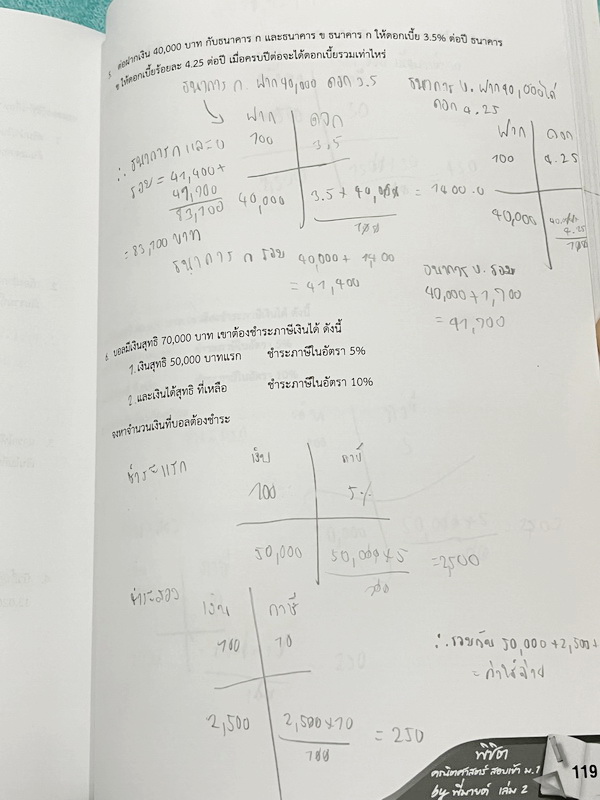 5. ต่อฝากเงิน 40,000 บาท กับธนาคาร ก และธนาคาร ข ธนาคาร ก ให้ดอกเบี้ย 3.5% ต่อปี ธนาคาร
ข ให้ดอกเบี้ยร้อยละ 4.25 ต่อปี เมื่อครบปีต่อจะได้ดอกเบี้ยรวมเท่าไหร่
ธนาคาร ก. ฝาก 40,000 ดอก 3.5
ฝาก ดอก
100 3.5
40,000 3.5 × 40,000 = 1400.0
100
∴ ธนาคาร ก และ ข
รวม = 41,400+
41,700
83,100
= 83,100 บาท
ธนาคาร ก รวม 40,000 + 1400
= 41,400
ธนาคาร ข. ฝาก 40,000 ได้
ดอก 4.25
ฝาก ดอก
100 4.25
40,000 40,000
4.25
100
ธนาคาร ข. รวม
40,000 + 1,700
= 41,700
6. บอลมีเงินสุทธิ 70,000 บาท เขาต้องชำระภาษีเงินได้ ดังนี้
1. เงินสุทธิ 50,000 บาทแรก ชำระภาษีในอัตรา 5%
2. และเงินได้สุทธิ ที่เหลือ ชำระภาษีในอัตรา 10%
จงหาจำนวนเงินที่บอลต้องชำระ
ชำระแรก
เงิน ภาษี
100 5%
50,000 50,000×5 = 2500
100
ชำระสอง
เงิน ภาษี
100 10
2,500 2,500×10 = 250
100
∴ รวมกัน 50,000+2,500+
= ค่าใช้จ่าย
พิชิต
คณิตศาสตร์ สอบเข้า ม.1
by พี่มายด์ เล่ม 2
119